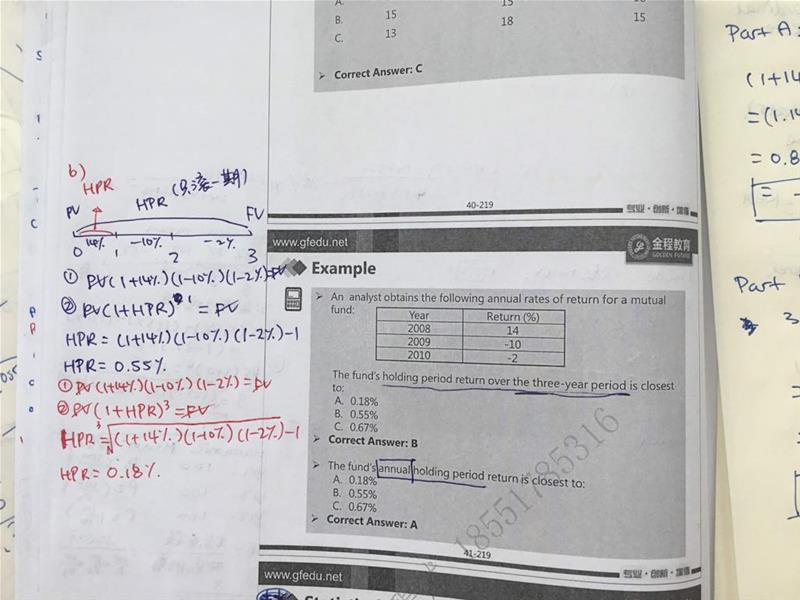 A. 15
B. 15 18 15
C. 13
Correct Answer: C
40-219
Part A:
(1+14
=(1.14
=0.8
Part
3
b)
HPR
HPR (只滚一期)
PV FV
14% -10% -2%
0 1 2 3
① PV(1+14%)(1-10%)(1-2%)=FV
② PV(1+HPR)^1 = FV
HPR=(1+14%)(1-10%)(1-2%)-1
HPR=0.55%
① PV(1+14%)(1-10%)(1-2%)=FV
② PV(1+HPR)³=FV
HPR=³√(1+14%)(1-10%)(1-2%)-1
HPR=0.18%
www.gfedu.net
金程教育
GOLDEN FUTURE
Example
An analyst obtains the following annual rates of return for a mutual
fund:
Year Return (%)
2008 14
2009 -10
2010 -2
The fund's holding period return over the three-year period is closest
to:
A. 0.18%
B. 0.55%
C. 0.67%
Correct Answer: B
The fund's annual holding period return is closest to:
A. 0.18%
B. 0.55%
C. 0.67%
Correct Answer: A
18551785316
41-219
www.gfedu.net